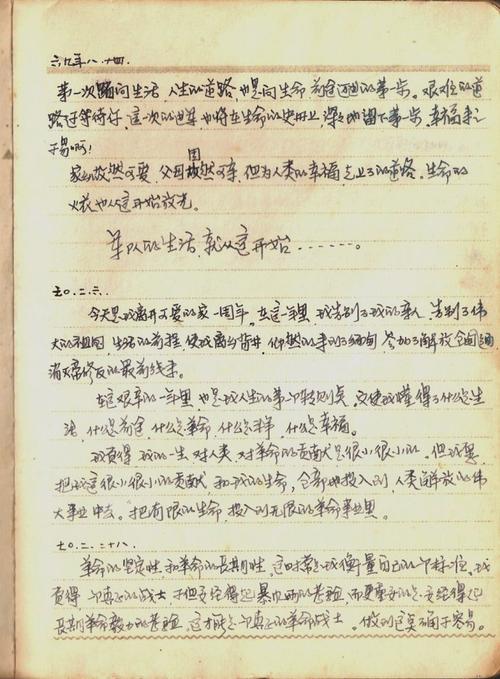 六九年八.十四
第一次踏向生活,人生的道路,也是向生命前途迈进的第一步。艰难的道
路还等待,这一次的也将在生命的史册上深深地留下第一步,幸福来之
不易啊!
家乡故然可爱,父母固然可亲,但为人类的幸福走上了的道路。生命的
火花也从这开始放光。
军队的生活,就从这开始……。
七〇.二.六.
今天是我离开可爱的家一周年。在这一年里,我告别了我的亲人,告别了伟
大的祖国,生活的前程,使我离乡背井,毅然的来到了缅甸,参加了解放全
消灭帝修反的最前线来。
在这艰辛的一年里,也是我人生的第一个转折点。它使我懂得了什么是生
活,什么是前途,什么是革命,什么是,什么是幸福。
我觉得,我的一生,对人类,对革命的贡献是很小很小的,但我要
把我这很小很小的贡献和我的生命,全部地投入到,人类解放的伟
大事业中去。把有限的生命,投入到无限的革命事业里。
七〇.二.二十八.
革命的坚定性,和革命的长期性,这时常是我衡量自己的一个标准,我
觉得一个真正的战士,不但要经得起暴风雨的考验,而更重要的是要经得起
长期革命毅力的考验,这才能是一个真正的革命战士。做到这莫确不容易。